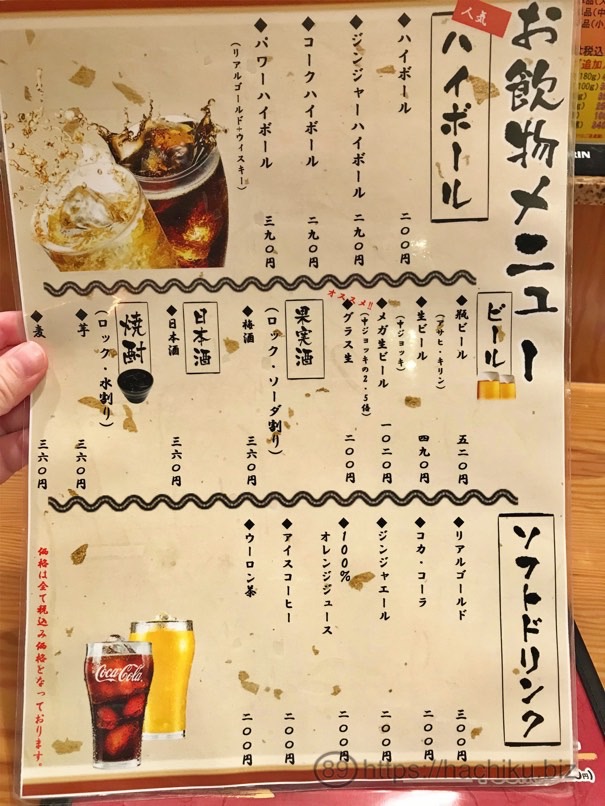 お飲物メニュー
人気
ハイボール
◆ハイボール 二〇〇円
◆ジンジャーハイボール 二九〇円
◆コークハイボール 二九〇円
◆パワーハイボール 三九〇円
(リアルゴールド+ウィスキー)
ビール
◆瓶ビール 五二〇円
(アサヒ・キリン)
◆生ビール 四九〇円
(中ジョッキ)
◆メガ生ビール 一〇二〇円
(中ジョッキの2.5倍)
オススメ!!
◆グラス生 二〇〇円
果実酒
(ロック・ソーダ割り)
◆梅酒 三六〇円
日本酒
◆日本酒 三六〇円
焼酎
(ロック・水割り)
◆芋 三六〇円
◆麦 三六〇円
ソフトドリンク
◆リアルゴールド 三〇〇円
◆コカ・コーラ 二〇〇円
◆ジンジャエール 二〇〇円
◆100%
オレンジジュース 二〇〇円
◆アイスコーヒー 二〇〇円
◆ウーロン茶 二〇〇円
Coca-Cola
価格は全て税込み価格となっております。
89 https://hachiku.biz